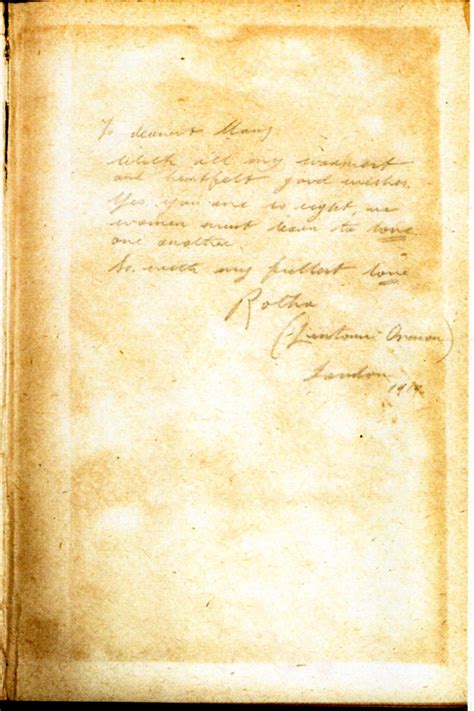 To dearest Mary
With all my warmest
and heartfelt good wishes.
Yes, you are so right, we
women must learn to love
one another.
So, with my fullest love
Rotha
(Lintorn Orman)
London
1914